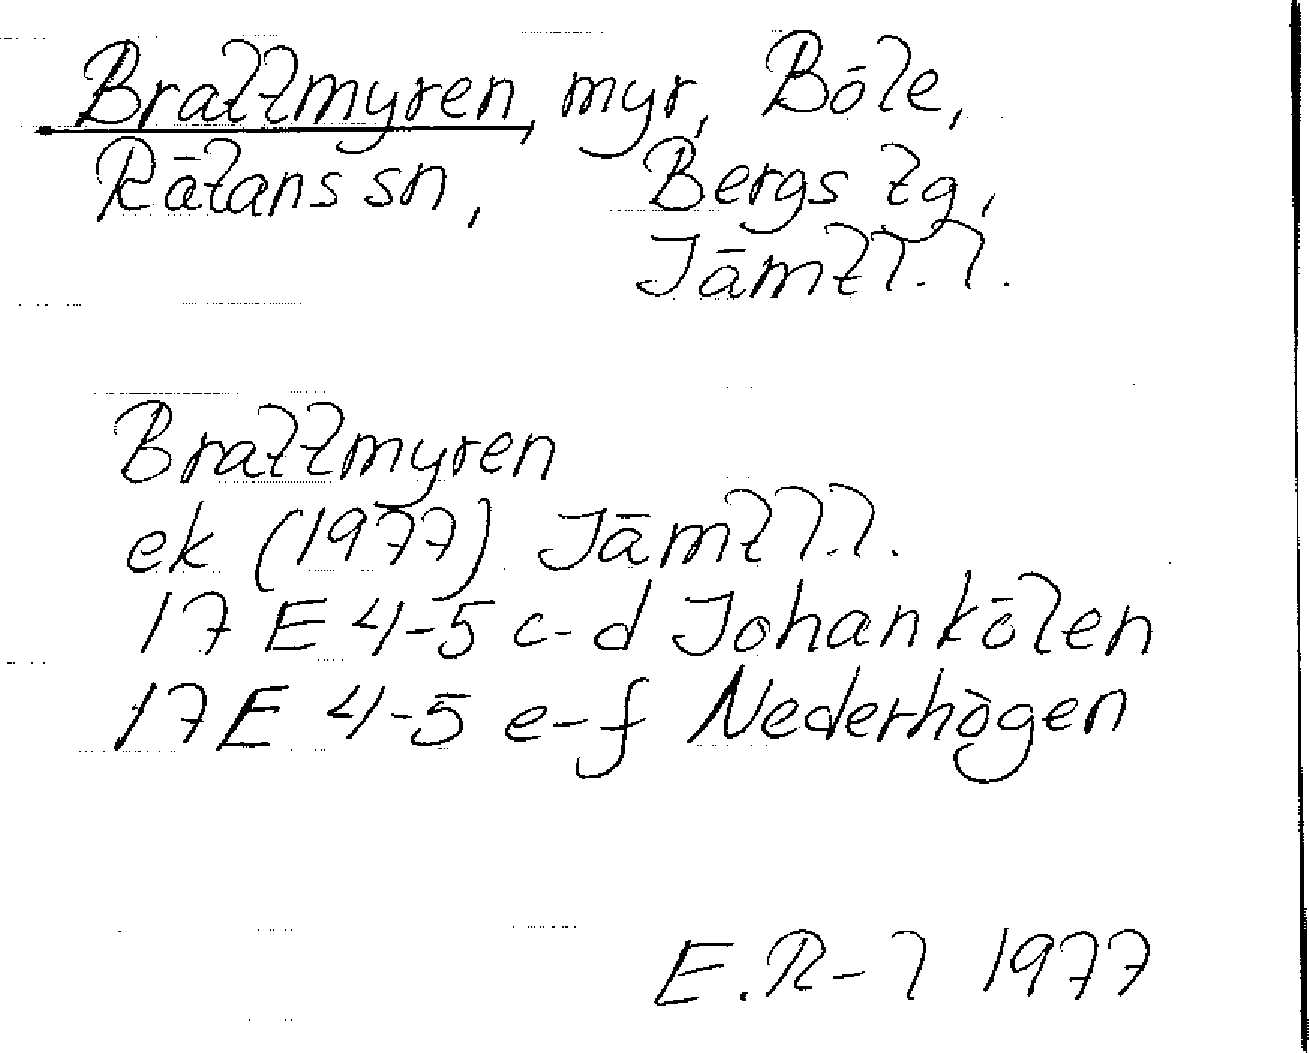 Brattmyren, myr, Böle,
Rätans sn, Bergs tg,
Jämtl.l.
Brattmyren
ek (1977) Jämtl.l.
17 E 4-5 c-d Johankölen
17 E 4-5 e-f Nederhögen
E.R-l 1977